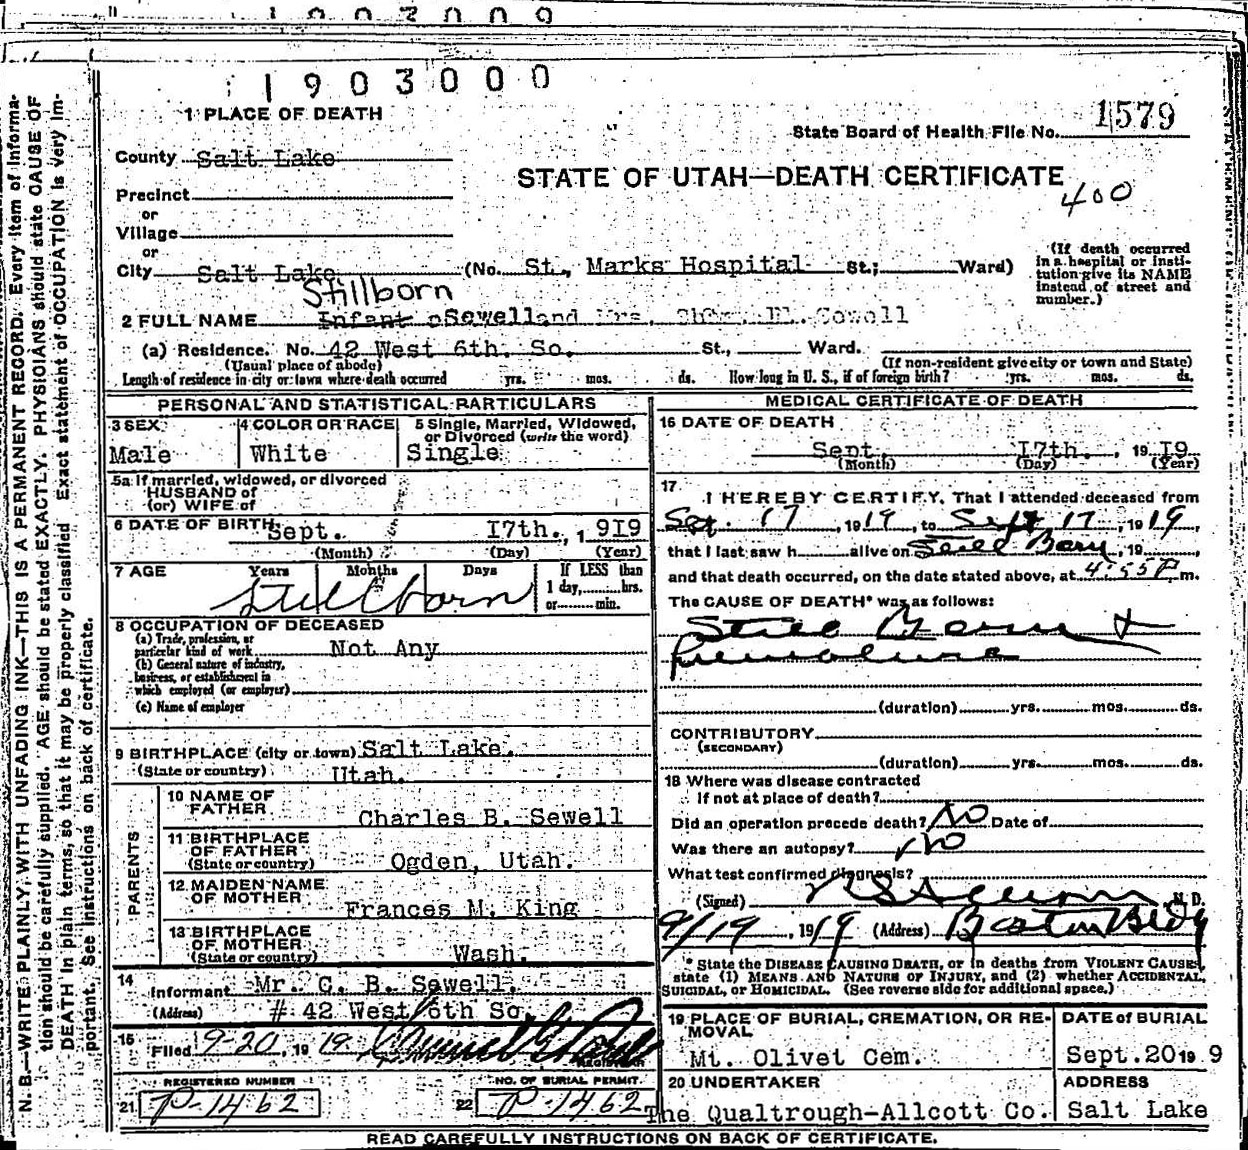 1903000
1 PLACE OF DEATH
State Board of Health File No. 1579
County Salt Lake
STATE OF UTAH—DEATH CERTIFICATE
400
Precinct
or
Village
or
City Salt Lake (No. St., Marks Hospital St.; Ward)
(If death occurred in a hospital or institution give its NAME instead of street and number.)
Stillborn
2 FULL NAME Infant Sewell and Mrs.
(a) Residence. No. 42 West 6th. So. St., Ward.
(Usual place of abode) (If non-resident give city or town and State)
Length of residence in city or town where death occurred yrs. mos. ds. How long in U. S., if of foreign birth? yrs. mos. ds.
PERSONAL AND STATISTICAL PARTICULARS
3 SEX 4 COLOR OR RACE 5 Single, Married, Widowed, or Divorced (write the word)
Male White Single
5a If married, widowed, or divorced
HUSBAND of
(or) WIFE of
6 DATE OF BIRTH Sept. I7th., 1 9I9
(Month) (Day) (Year)
7 AGE Years Months Days If LESS than
1 day, hrs.
or min.
Stillborn
8 OCCUPATION OF DECEASED
(a) Trade, profession, or
particular kind of work Not Any
(b) General nature of industry,
business, or establishment in
which employed (or employer)
(c) Name of employer
9 BIRTHPLACE (city or town) Salt Lake.
(State or country) Utah.
PARENTS
10 NAME OF
FATHER Charles B. Sewell
11 BIRTHPLACE
OF FATHER
(State or country) Ogden, Utah.
12 MAIDEN NAME
OF MOTHER Frances M. King
13 BIRTHPLACE
OF MOTHER
(State or country) Wash.
14 Informant Mr. C. B. Sewell.
(Address) # 42 West 6th So.
15 Filed 9-20, 1919
REGISTRAR
REGISTERED NUMBER NO. OF BURIAL PERMIT
21. P-1462 22 P-1462
MEDICAL CERTIFICATE OF DEATH
16 DATE OF DEATH
Sept. I7th., 19I9
(Month) (Day) (Year)
17 I HEREBY CERTIFY, That I attended deceased from
Sept. 17, 1919, to Sept 17, 1919,
that I last saw h alive on Still Born, 19,
and that death occurred, on the date stated above, at 4:55 P m.
The CAUSE OF DEATH* was as follows:
Still Born &
Premature
(duration) yrs. mos. ds.
CONTRIBUTORY
(SECONDARY)
(duration) yrs. mos. ds.
18 Where was disease contracted
If not at place of death?
Did an operation precede death? No Date of
Was there an autopsy? no
What test confirmed diagnosis?
(Signed) M. D.
9/19, 1919 (Address) Boston Bldg
* State the DISEASE CAUSING DEATH, or in deaths from VIOLENT CAUSES,
state (1) MEANS AND NATURE OF INJURY, and (2) whether ACCIDENTAL,
SUICIDAL, or HOMICIDAL. (See reverse side for additional space.)
19 PLACE OF BURIAL, CREMATION, OR REMOVAL DATE of BURIAL
Mt. Olivet Cem. Sept.20 19 9
20 UNDERTAKER ADDRESS
The Qualtrough-Allcott Co. Salt Lake
READ CAREFULLY INSTRUCTIONS ON BACK OF CERTIFICATE.
N. B.—WRITE PLAINLY, WITH UNFADING INK—THIS IS A PERMANENT RECORD. Every item of informa-
tion should be carefully supplied. AGE should be stated EXACTLY. PHYSICIANS should state CAUSE OF
DEATH in plain terms, so that it may be properly classified. Exact statement of OCCUPATION is very im-
portant. See instructions on back of certificate.